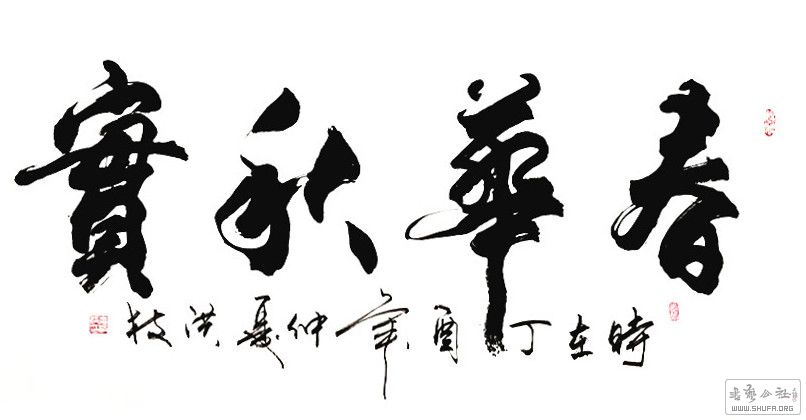 春華秋實
時在丁酉年仲夏洪
書藝公社
WWW.SHUFA.ORG